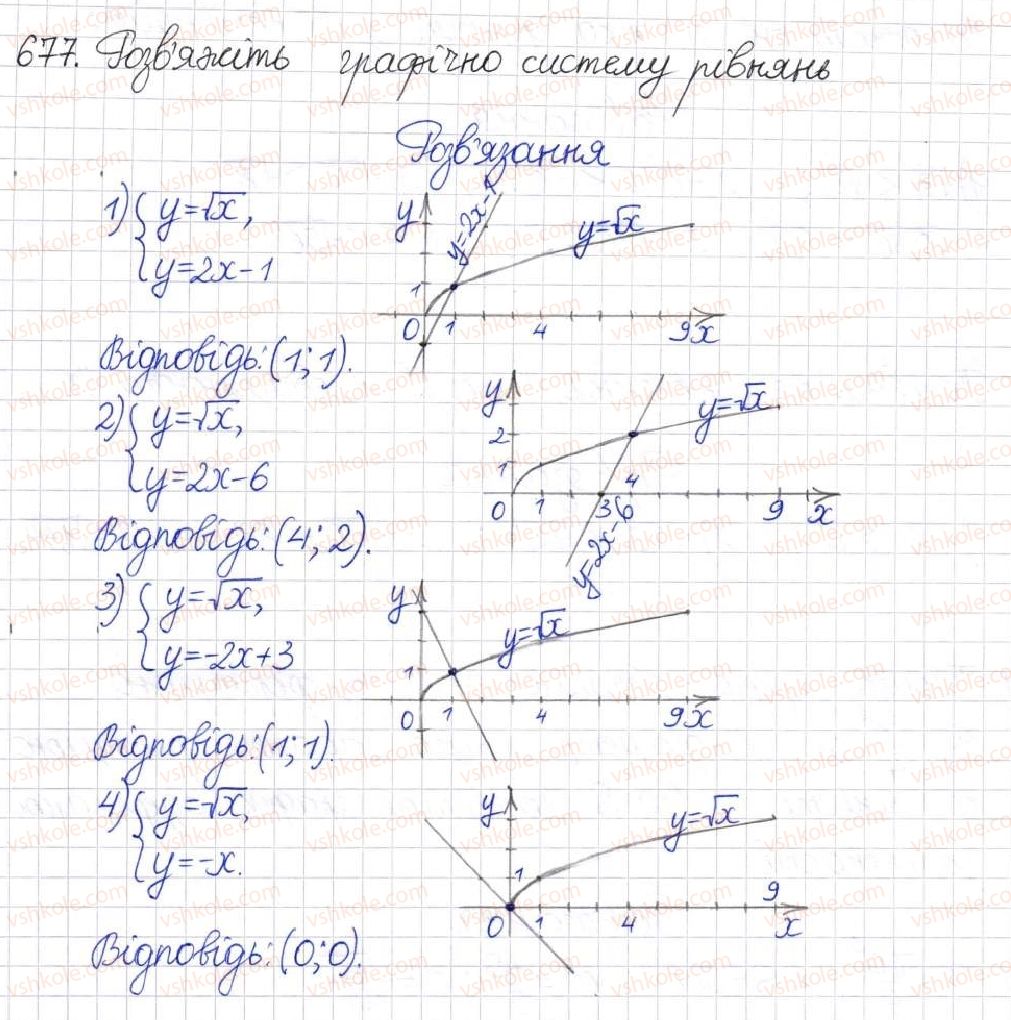 677. Розв'яжіть графічно систему рівнянь
Розв'язання
1) { y=√x,
y=2x-1
y
y=2x-1
y=√x
1
0 1 4 9 x
Відповідь: (1; 1).
2) { y=√x,
y=2x-6
y
y=√x
2
1
0 1 3 4 9 x
y=2x-6
Відповідь: (4; 2).
3) { y=√x,
y=-2x+3
y
y=√x
1
0 1 4 9 x
Відповідь: (1; 1).
4) { y=√x,
y=-x.
y
y=√x
1
0 1 4 9 x
Відповідь: (0; 0).
vshkole.com